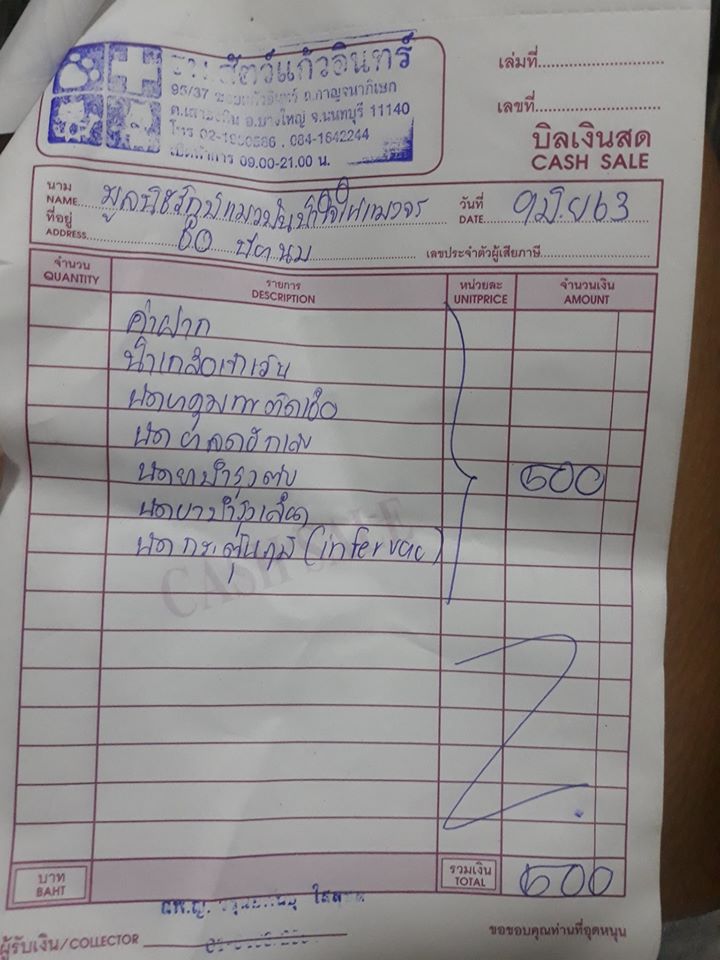 รพ.สัตว์แก้วอินทร์
95/37 ซอยแก้วอินทร์ ถ.กาญจนาภิเษก
ต.เสาธงหิน อ.บางใหญ่ จ.นนทบุรี 11140
โทร 02-1950586 , 084-1642244
เปิดทำการ 09.00-21.00 น.
เล่มที่
เลขที่
บิลเงินสด
CASH SALE
นาม
NAME มูลนิธิรักษ์แมวปันน้ำใจให้แมวจร
วันที่
DATE 9 มิ.ย 63
ที่อยู่
ADDRESS
เลขประจำตัวผู้เสียภาษี
จำนวน
QUANTITY
รายการ
DESCRIPTION
หน่วยละ
UNITPRICE
จำนวนเงิน
AMOUNT
ค่าฝาก
น้ำเกลือเข้าเส้น
ฉีดยาคุมการติดเชื้อ
ฉีดยาลดอักเสบ
ฉีดยาบำรุงตับ
500
ฉีดยาบำรุงเลือด
ฉีดกระตุ้นภูมิ (infervac)
CASH SALE
บาท
BAHT
รวมเงิน
TOTAL 500
ผู้รับเงิน/COLLECTOR
ขอขอบคุณท่านที่อุดหนุน